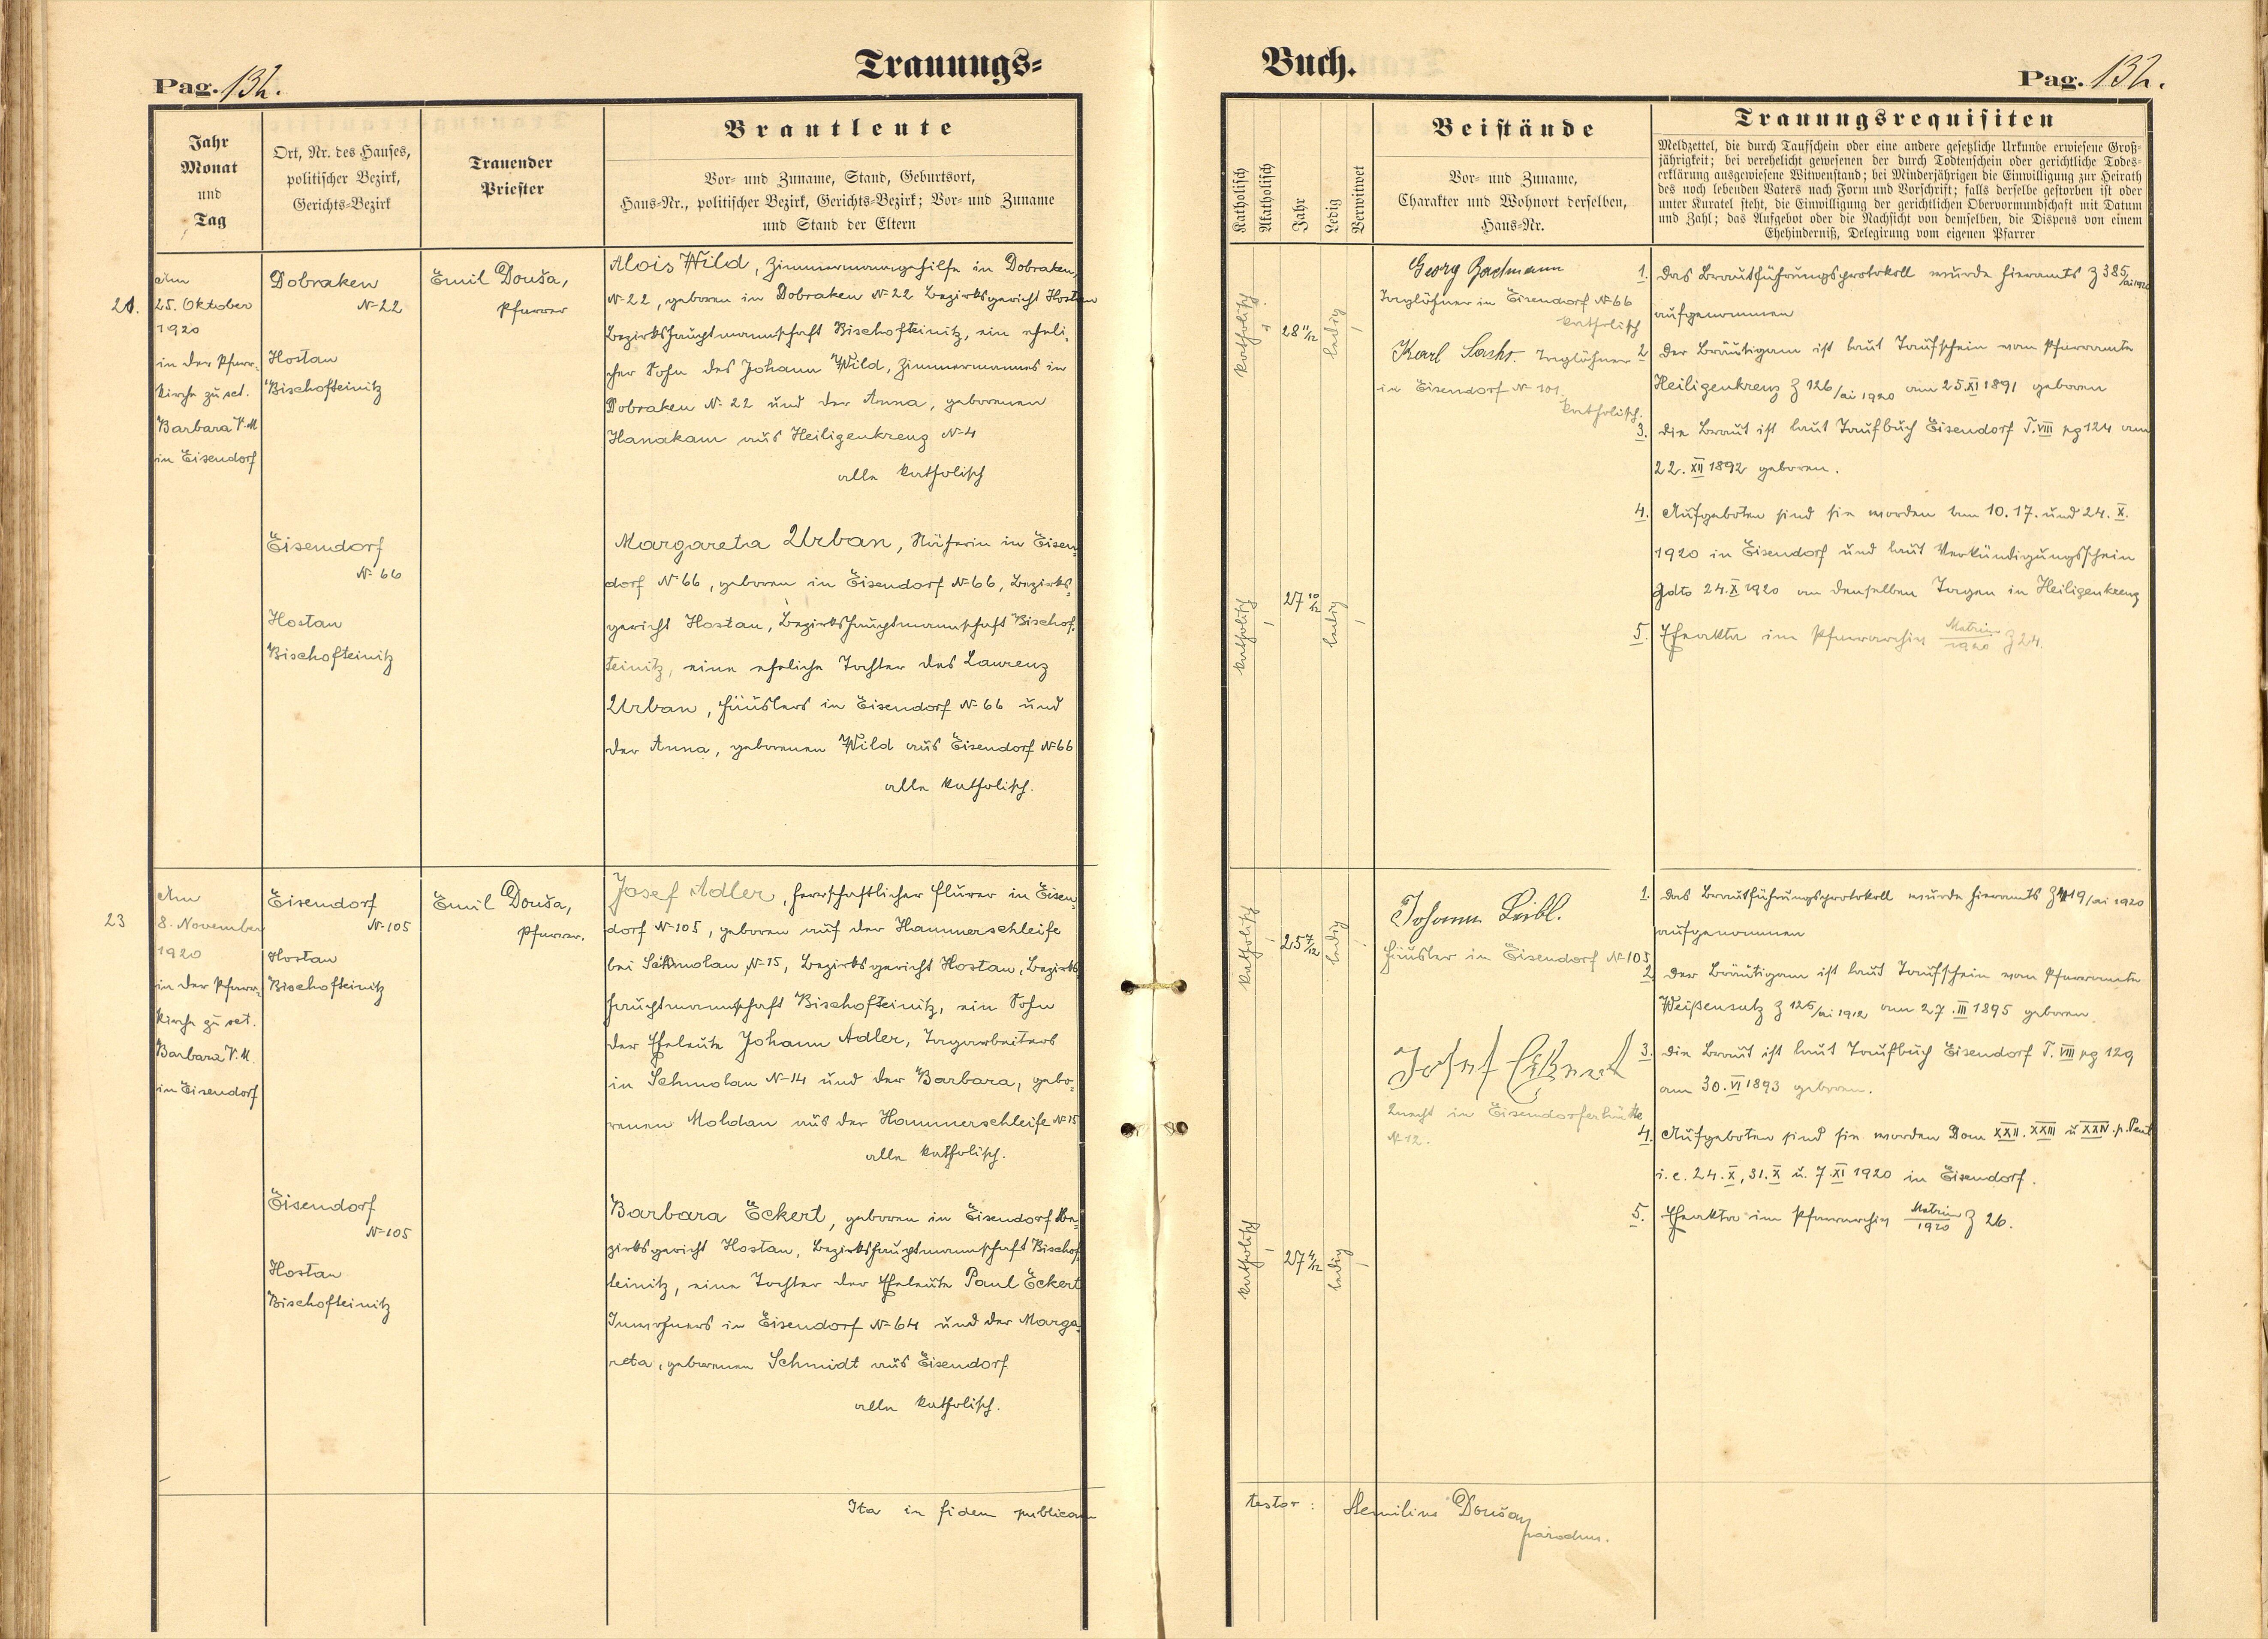 Pag. 132.
Trauungs=
Jahr
Monat
und
Tag
Ort, Nr. des Hauses,
politischer Bezirk,
Gerichts-Bezirk
Trauender
Priester
Brautleute
Vor- und Zuname, Stand, Geburtsort,
Haus-Nr., politischer Bezirk, Gerichts-Bezirk; Vor- und Zuname
und Stand der Eltern
21.
Am
25. Oktober
1920
in der Pfarr-
kirche zu sct.
Barbara V. M
in Eisendorf
Dobraken
N-22
Hostau
Bischofteinitz
Emil Douša,
Pfarrer
Alois Wild, Zimmermannsgehilfe in Dobraken,
N-22, geboren in Dobraken N-22 Bezirksgericht Hostau
Bezirkshauptmannschaft Bischofteinitz, ein eheli-
cher Sohn des Johann Wild, Zimmermannes in
Dobraken N-22 und der Anna, geborenen
Hanakam aus Heiligenkreuz N-4
alle katholisch
Eisendorf
N-66
Hostau
Bischofteinitz
Margareta Urban, Näherin in Eisen-
dorf N-66, geboren in Eisendorf N-66, Bezirks-
gericht Hostau, Bezirkshauptmannschaft Bischof-
teinitz, eine eheliche Tochter des Laurenz
Urban, Häuslers in Eisendorf N-66 und
der Anna, geborenen Wild aus Eisendorf N-66
alle katholisch.
23
Am
8. November
1920
in der Pfarr-
kirche zu sct.
Barbara V. M.
in Eisendorf
Eisendorf
N-105
Hostau
Bischofteinitz
Emil Douša,
Pfarrer.
Josef Adler, herrschaftlicher Flurer in Eisen-
dorf N-105, geboren auf der Hammerschleife
bei Schmolau N-15, Bezirksgericht Hostau, Bezirks
hauptmannschaft Bischofteinitz, ein Sohn
der Eheleute Johann Adler, Tagarbeiters
in Schmolau N-14 und der Barbara, gebo-
renen Moldan aus der Hammerschleife N-15
alle katholisch.
Eisendorf
N-105
Hostau
Bischofteinitz
Barbara Eckert, geboren in Eisendorf Be-
zirksgericht Hostau, Bezirkshauptmannschaft Bischof
teinitz, eine Tochter der Eheleute Paul Eckert
Inwohners in Eisendorf N-64 und der Marga-
reta, geborenen Schmidt aus Eisendorf
alle katholisch.
Ita in fidem publicam
Buch.
Pag. 132.
Katholisch
Akatholisch
Jahr
Ledig
Verwitwet
Beistände
Vor- und Zuname,
Charakter und Wohnort derselben,
Haus-Nr.
Trauungsrequisiten
Meldzettel, die durch Taufschein oder eine andere gesetzliche Urkunde erwiesene Groß-
jährigkeit; bei verehelicht gewesenen der durch Todtenschein oder gerichtliche Todes-
erklärung ausgewiesene Witwenstand; bei Minderjährigen die Einwilligung zur Heirath
des noch lebenden Vaters nach Form und Vorschrift; falls derselbe gestorben ist oder
unter Kuratel steht, die Einwilligung der gerichtlichen Obervormundschaft mit Datum
und Zahl; das Aufgebot oder die Nachsicht von demselben, die Dispens von einem
Ehehinderniß, Delegirung vom eigenen Pfarrer
katholisch
28 11/12
ledig
Georg
Taglöhner in Eisendorf N-66
katholisch
Karl Taglöhner
in Eisendorf N-101.
katholisch.
1. Das Brautführungsprotokoll wurde hieramts Z 385/ai 1920
aufgenommen
2. Der Bräutigam ist laut Taufschein vom Pfarramte
Heiligenkreuz Z 126/ai 1920 am 25.XI 1891 geboren
3. Die Braut ist laut Taufbuch Eisendorf T. VIII pg 124 am
22. XII 1892 geboren.
4. Aufgeboten sind sie worden am 10. 17. und 24. X.
1920 in Eisendorf und laut Verkündigungsschein
gdto 24. X 1920 an denselben Tagen in Heiligenkreuz
5. Eheakta im Pfarrarchiv Matrim/1920 Z 24.
katholisch
27 10/12
ledig
katholisch
25 7/12
ledig
Johann Leibl.
Häusler in Eisendorf N-105
Josef
Knecht in Eisendorferhütte
N-12.
1. Das Brautführungsprotokoll wurde hieramts Z 419/ai 1920
aufgenommen
2. Der Bräutigam ist laut Taufschein vom Pfarramte
Weißensulz Z 126/ai 1912 am 27. III 1895 geboren
3. Die Braut ist laut Taufbuch Eisendorf T. VIII pg 129
am 30. VI 1893 geboren.
4. Aufgeboten sind sie worden Dom XXII. XXIII u XXIV. p. Pent
i. e. 24. X, 31. X u. 7. XI 1920 in Eisendorf.
5. Eheakta im Pfarrarchiv Matrim/1920 Z 26.
katholisch
27 4/12
ledig
testor: Aemilius Douša
parochus.